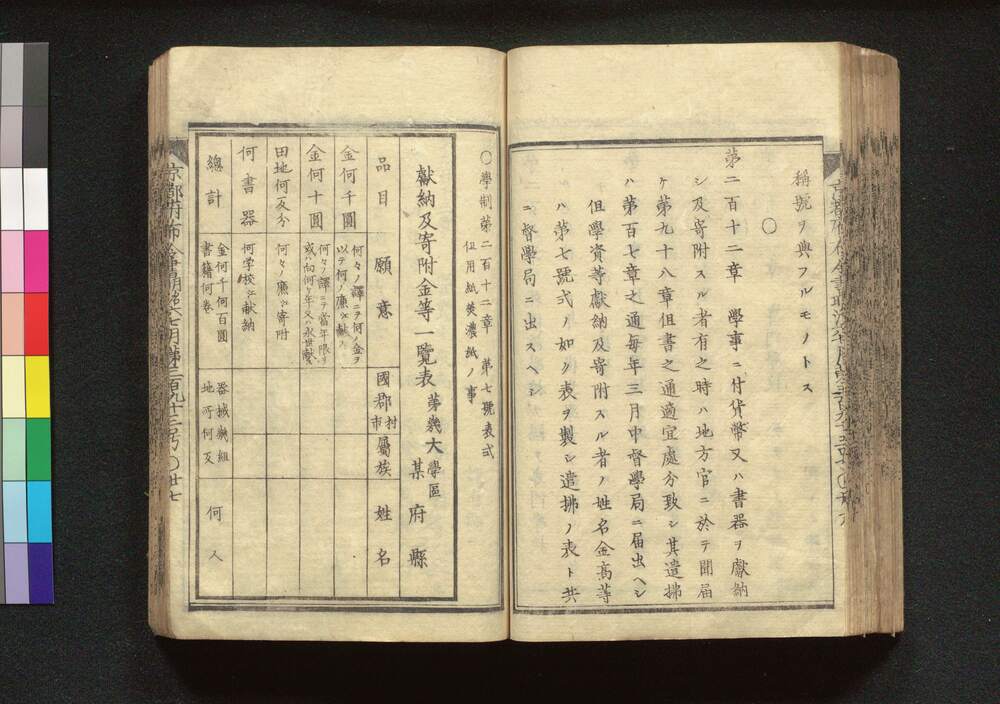 稱號ヲ與フルモノトス
○
第二百十二章　學事ニ付貨幣又ハ書器ヲ獻納
シ及寄附スル者有之時ハ地方官ニ於テ聞届
ケ第九十八章但書之通適宜處分致シ其遣拂
ハ第百七章之通毎年三月中督學局ニ届出ヘシ
但學資等獻納及寄附スル者ノ姓名金高等
ハ第七號式ノ如ク表ヲ製シ遣拂ノ表ト共
ニ督學局ニ出スヘシ
○學制第二百十二章　第七號表式
但用紙美濃紙ノ事
獻納及寄附金等一覽表　第幾大學區　某府縣
品目　願意　國郡村市　屬族　姓名
金何千圓　何々ノ譯ニテ何ノ金ヲ以テ何ノ廉ヘ獻ス
金何十圓　何々ノ譯ニテ當年限リ或ハ向何ケ年又ハ永世獻
田地何反分　何々ノ廉ヘ寄附
何書器　何学校ヘ献納
總計　金何千何百圓　書籍何卷　器械幾組　地所何反　何人